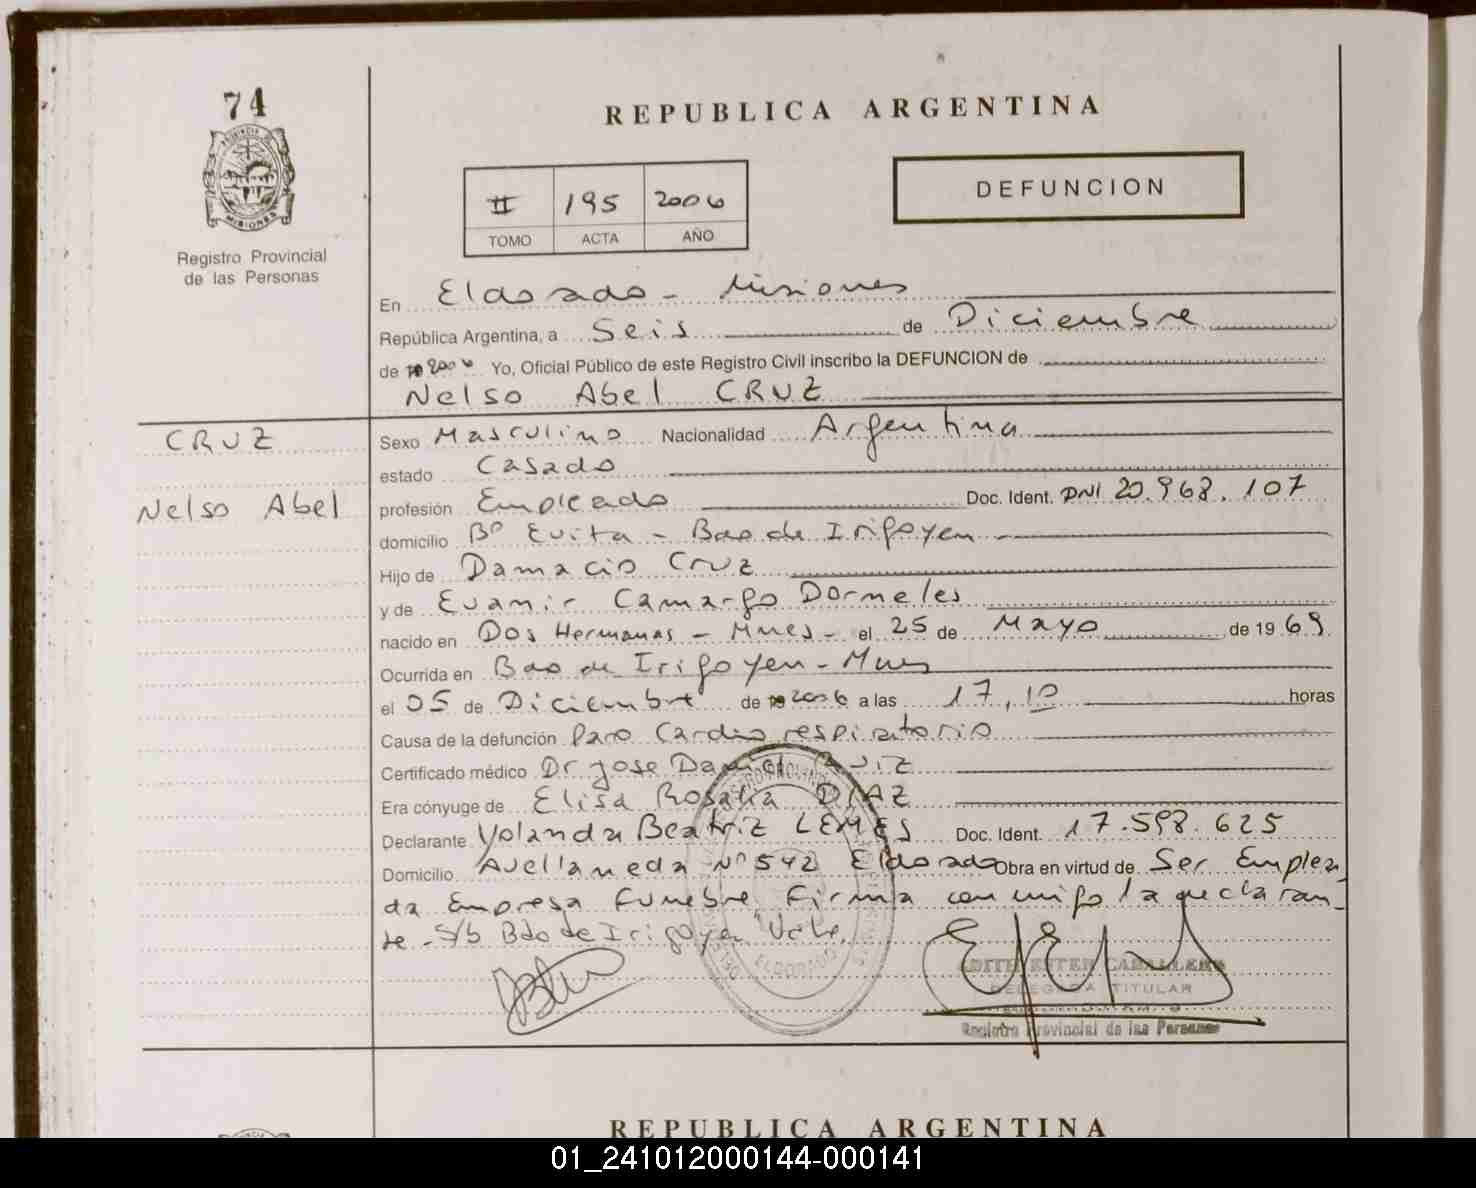 74
REPUBLICA ARGENTINA
PROVINCIA DE
MISIONES
Registro Provincial
de las Personas
DEFUNCION
II 195 2006
TOMO ACTA AÑO
En Eldorado - Misiones
República Argentina, a Seis de Diciembre
de 2006 Yo, Oficial Público de este Registro Civil inscribo la DEFUNCION de
Nelso Abel CRUZ
CRUZ
Nelso Abel
Sexo Masculino Nacionalidad Argentina
estado Casado
profesión Empleado Doc. Ident. DNI 20.968.107
domicilio Bº Evita - Bdo de Irigoyen
Hijo de Damacio Cruz
y de Evanir Camargo Dorneles
nacido en Dos Hermanas - Mnes - el 25 de Mayo de 1969
Ocurrida en Bdo de Irigoyen - Mnes
el 05 de Diciembre de 2006 a las 17,10 horas
Causa de la defunción Paro Cardio respiratorio
Certificado médico Dr Jose Daniel Ruiz
Era cónyuge de Elisa Rosalia DIAZ
Declarante Yolanda Beatriz LEMES Doc. Ident. 17.598.625
Domicilio Avellaneda Nº 542 Eldorado Obra en virtud de Ser Emplea
da Empresa Funebre Firma conmigo la declaran_
te - S/b Bdo de Irigoyen Vale.
ELDORADO
EDITH ESTER CABALLERO
DELEGADA TITULAR
Registro Provincial de las Personas
REPUBLICA ARGENTINA
01_241012000144-000141